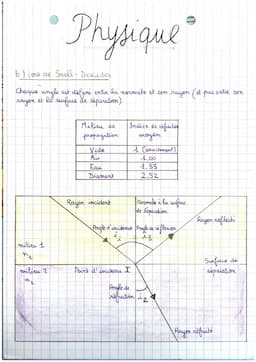 Physique
b) Lois de Snell-Descartes
Chaque angle est défini entre la normale et son rayon (et pas entre son
rayon et la surface de séparation).
Milieu de propagation | Indice de réfraction moyen
Vide | 1 (exactement)
Air | 1,00
Eau | 1,33
Diamant | 2,52
Rayon incident
Normale à la surface
de séparation
Rayon réfléchi
Angle d'incidence
i₁
Angle de réflexion
i₃
milieu 1
n₁
milieu 2
n₂
Point d'incidence I
Surface de
séparation
Angle de
réfraction i₂
Rayon réfracté